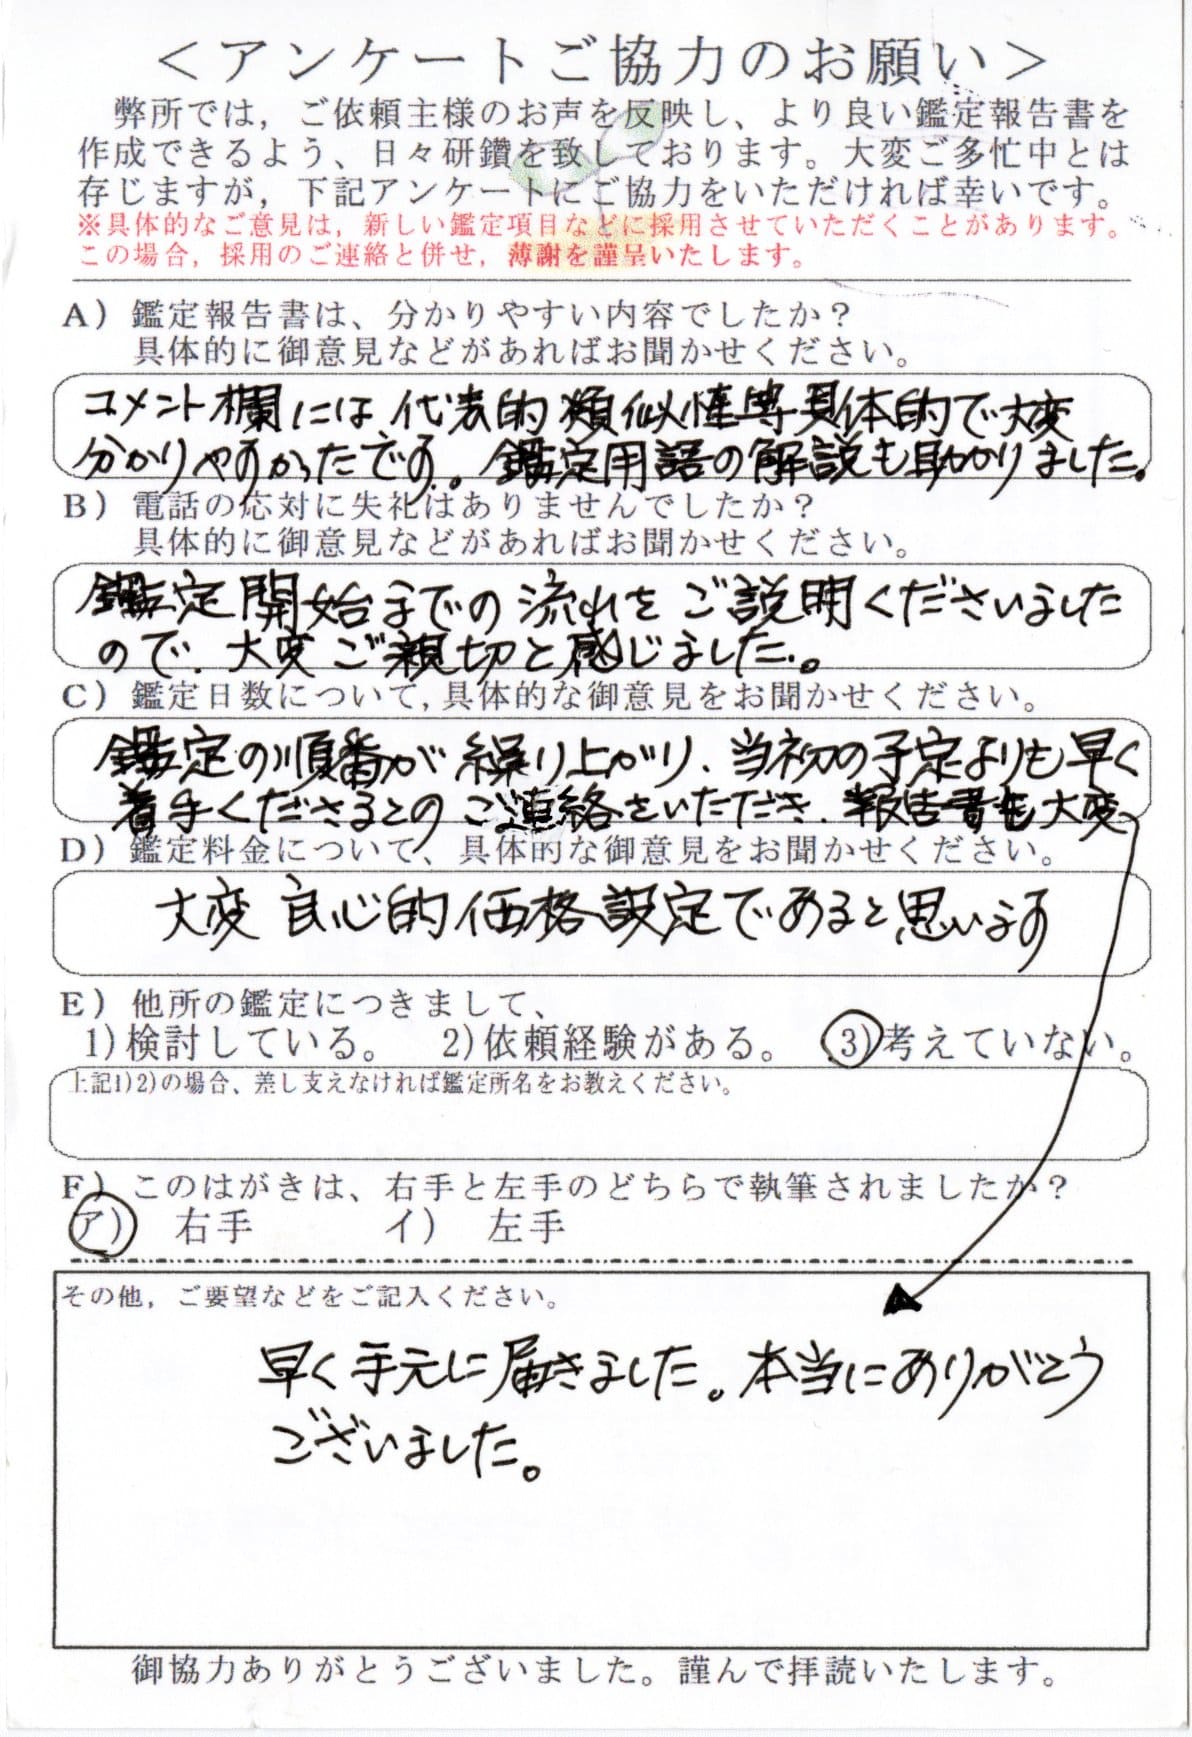 ＜アンケートご協力のお願い＞
弊所では，ご依頼主様のお声を反映し、より良い鑑定報告書を
作成できるよう、日々研鑽を致しております。大変ご多忙中とは
存じますが，下記アンケートにご協力をいただければ幸いです。
※具体的なご意見は，新しい鑑定項目などに採用させていただくことがあります。
この場合，採用のご連絡と併せ，薄謝を謹呈いたします。
A）鑑定報告書は、分かりやすい内容でしたか？
具体的に御意見などがあればお聞かせください。
コメント欄には、代表的類似性等具体的で大変
分かりやすかったです。鑑定用語の解説も助かりました。
B）電話の応対に失礼はありませんでしたか？
具体的に御意見などがあればお聞かせください。
鑑定開始までの流れをご説明くださいました
ので、大変ご親切と感じました。
C）鑑定日数について,具体的な御意見をお聞かせください。
鑑定の順番が繰り上がり、当初の予定よりも早く
着手くださるとのご連絡をいただき、報告書も大変
D）鑑定料金について、具体的な御意見をお聞かせください。
大変良心的価格設定であると思います
E）他所の鑑定につきまして、
1)検討している。 2)依頼経験がある。 3)考えていない。
上記1)2)の場合、差し支えなければ鑑定所名をお教えください。
F）このはがきは、右手と左手のどちらで執筆されましたか？
ア） 右手 イ） 左手
その他，ご要望などをご記入ください。
早く手元に届きました。本当にありがとう
ございました。
御協力ありがとうございました。謹んで拝読いたします。